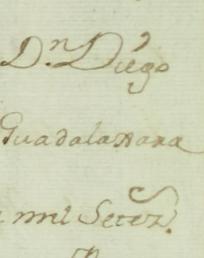 D.n Diego
Guadalaxara
mil Setez.